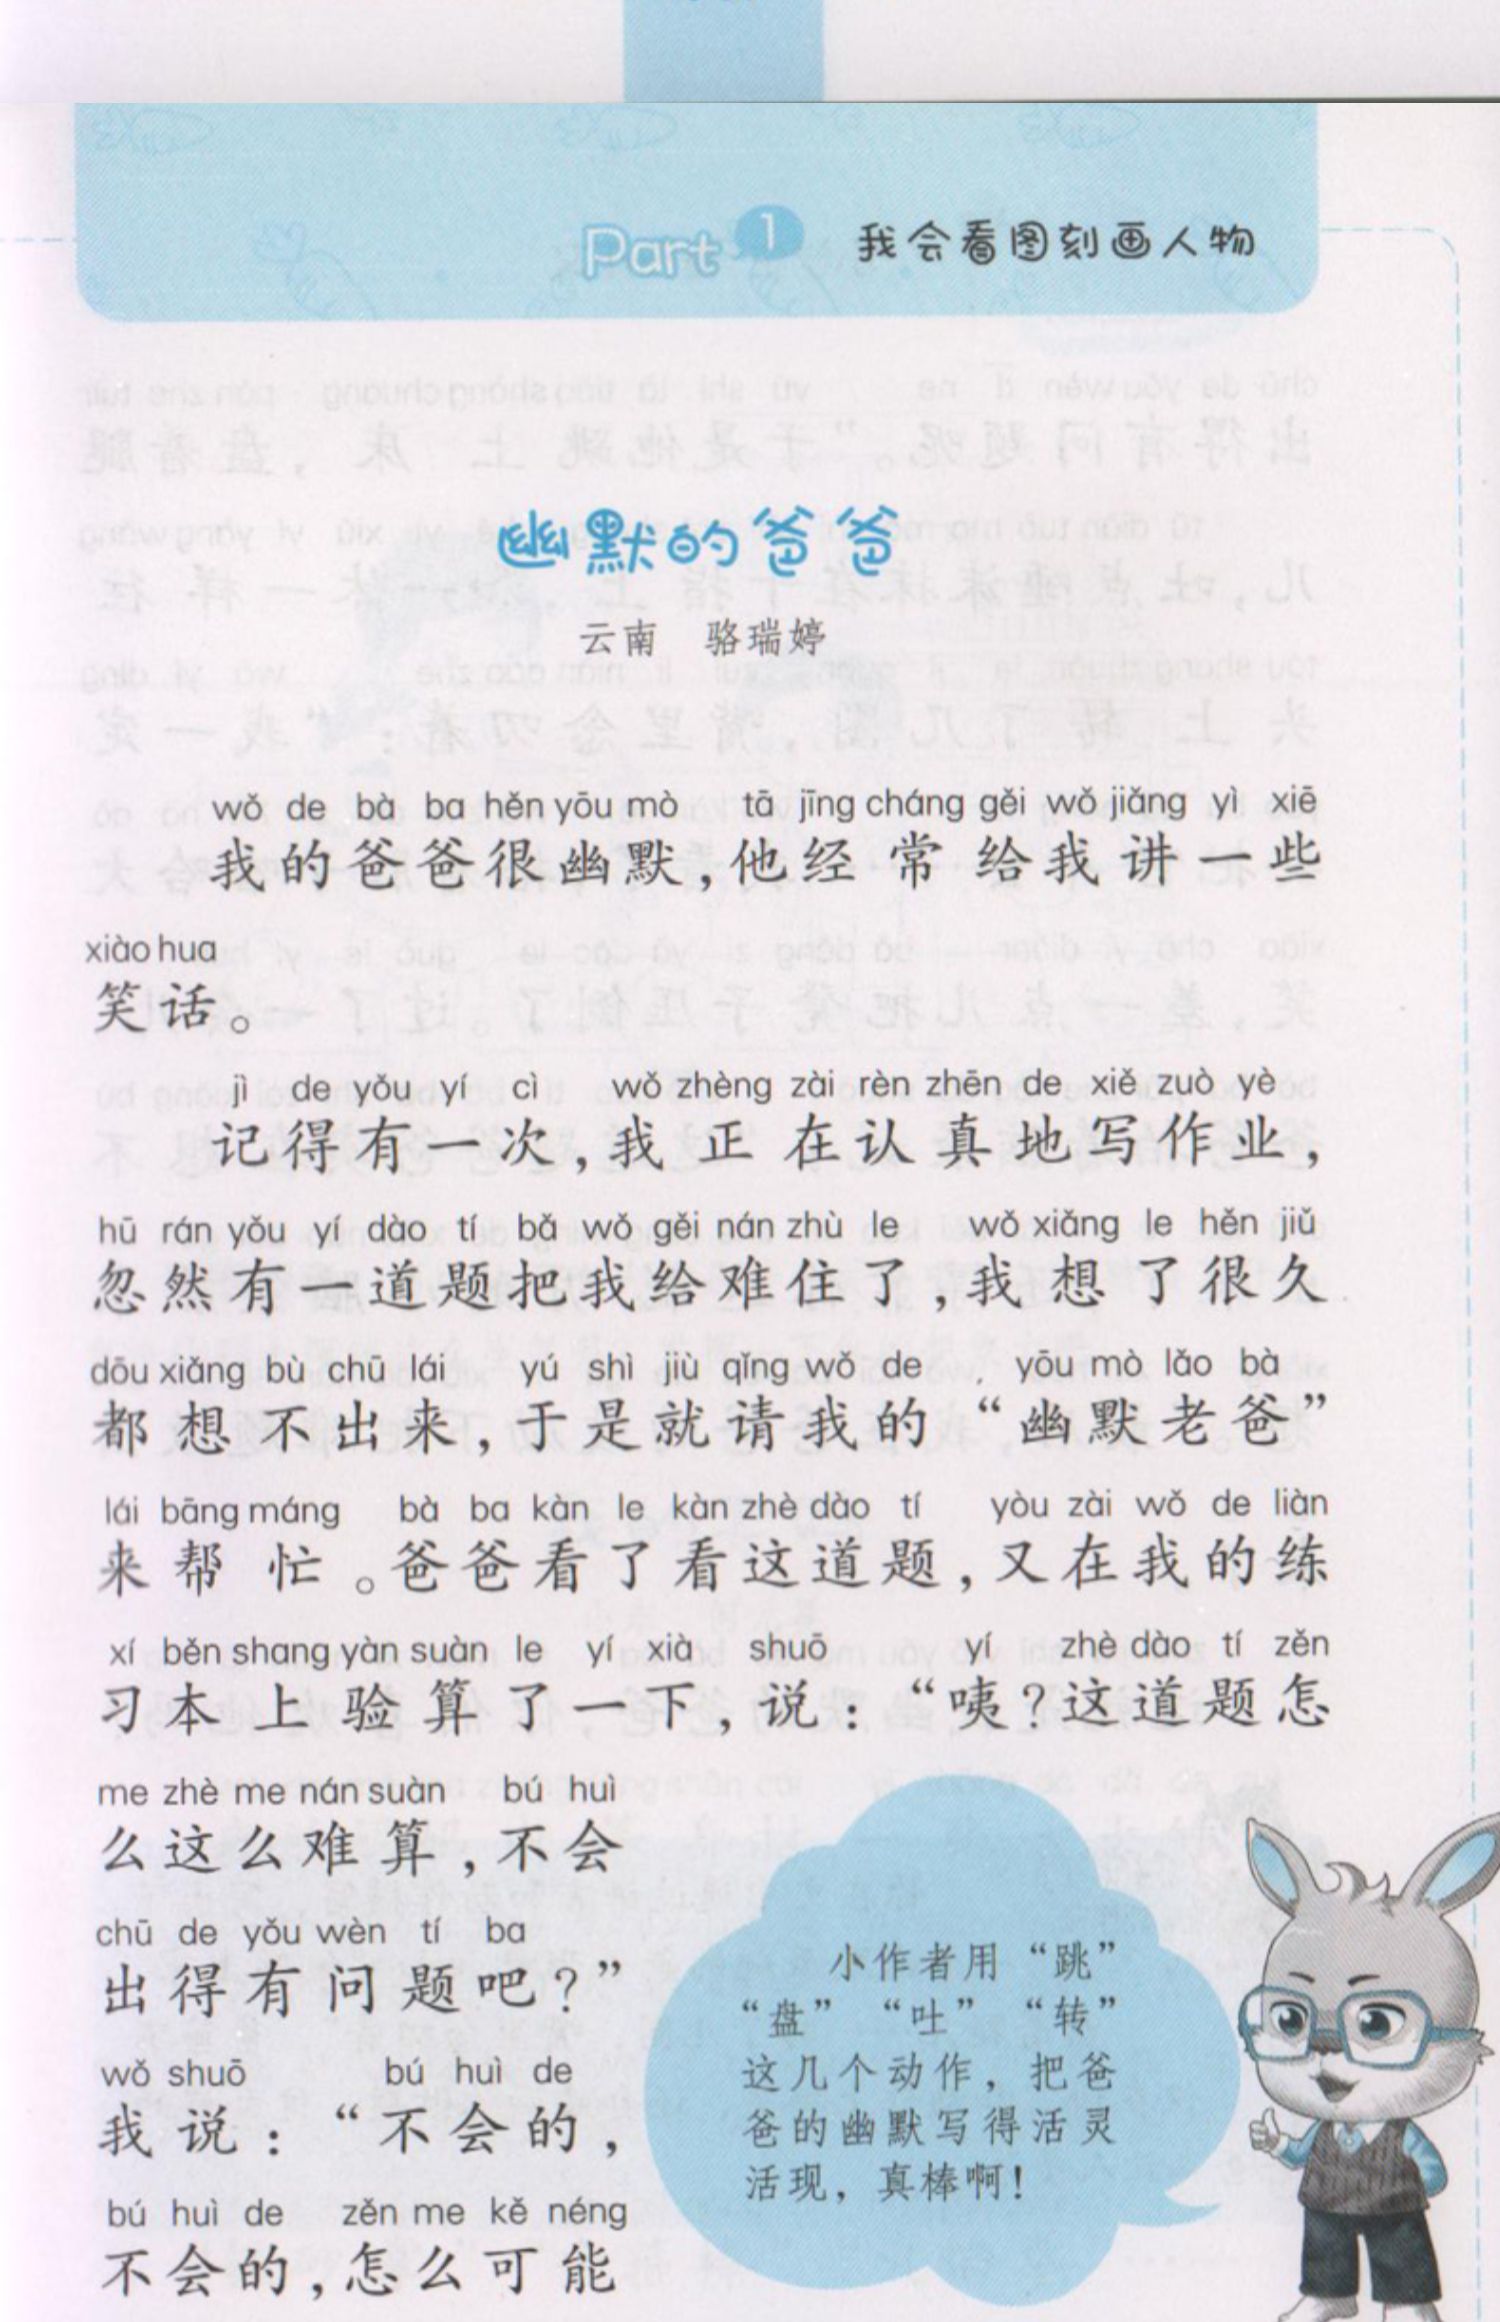 Part 1 我会看图刻画人物
幽默的爸爸
云南 骆瑞婷
wǒ de bà ba hěn yōu mò tā jīng cháng gěi wǒ jiǎng yì xiē
我的爸爸很幽默，他经常给我讲一些
xiào hua
笑话。
jì de yǒu yí cì wǒ zhèng zài rèn zhēn de xiě zuò yè
记得有一次，我正在认真地写作业，
hū rán yǒu yí dào tí bǎ wǒ gěi nán zhù le wǒ xiǎng le hěn jiǔ
忽然有一道题把我给难住了，我想了很久
dōu xiǎng bù chū lái yú shì jiù qǐng wǒ de yōu mò lǎo bà
都想不出来，于是就请我的“幽默老爸”
lái bāng máng bà ba kàn le kàn zhè dào tí yòu zài wǒ de liàn
来帮忙。爸爸看了看这道题，又在我的练
xí běn shang yàn suàn le yí xià shuō yí zhè dào tí zěn
习本上验算了一下，说：“咦？这道题怎
me zhè me nán suàn bú huì
么这么难算，不会
chū de yǒu wèn tí ba
出得有问题吧？”
wǒ shuō bú huì de
我说：“不会的，
bú huì de zěn me kě néng
不会的，怎么可能
小作者用“跳”
“盘”“吐”“转”
这几个动作，把爸
爸的幽默写得活灵
活现，真棒啊！